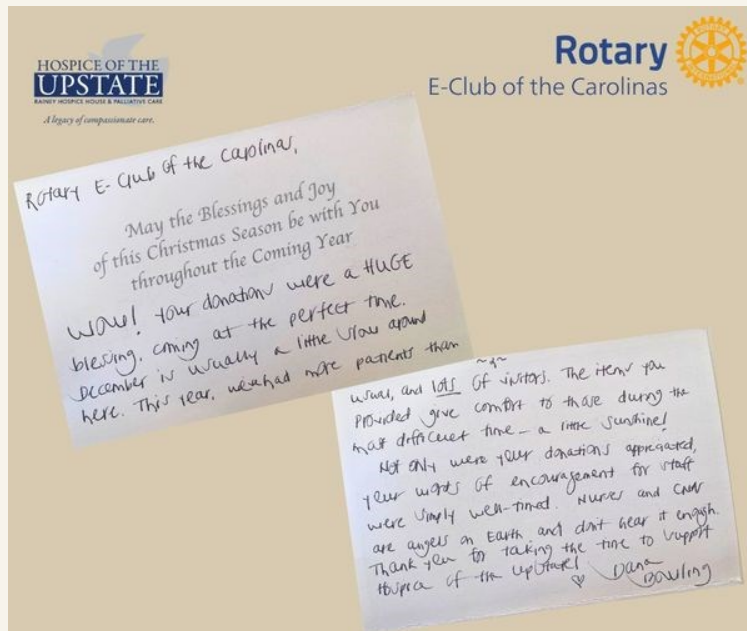 HOSPICE OF THE
UPSTATE
RAINEY HOSPICE HOUSE & PALLIATIVE CARE
A legacy of compassionate care.
Rotary
E-Club of the Carolinas
Rotary E-Club of the Carolinas,
May the Blessings and Joy
of this Christmas Season be with You
throughout the Coming Year
Wow! Your donations were a HUGE
blessing, coming at the perfect time.
December is usually a little slow around
here. This year, we've had more patients than
usual, and lots of visitors. The items you
provided give comfort to those during the
most difficult time - a little sunshine!
Not only were your donations appreciated,
your words of encouragement for staff
were simply well-timed. Nurses and CNAs
are angels on Earth and don't hear it enough.
Thank you for taking the time to support
Hospice of the Upstate!
♡ Dana
Bowling